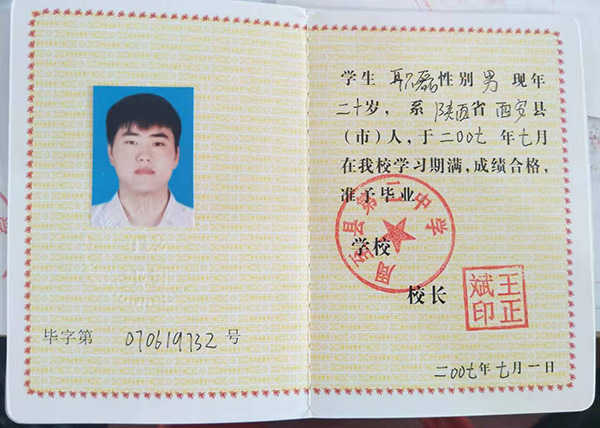 毕字第 070619732 号
学生 耿磊 性别 男 现年
二十岁，系 陕西 省 西安 县
（市）人，于二00七 年七月
在我校学习期满，成绩合格，
准予毕业
周至县第二中学
学校
校长
王正斌印
二00七年七月一日